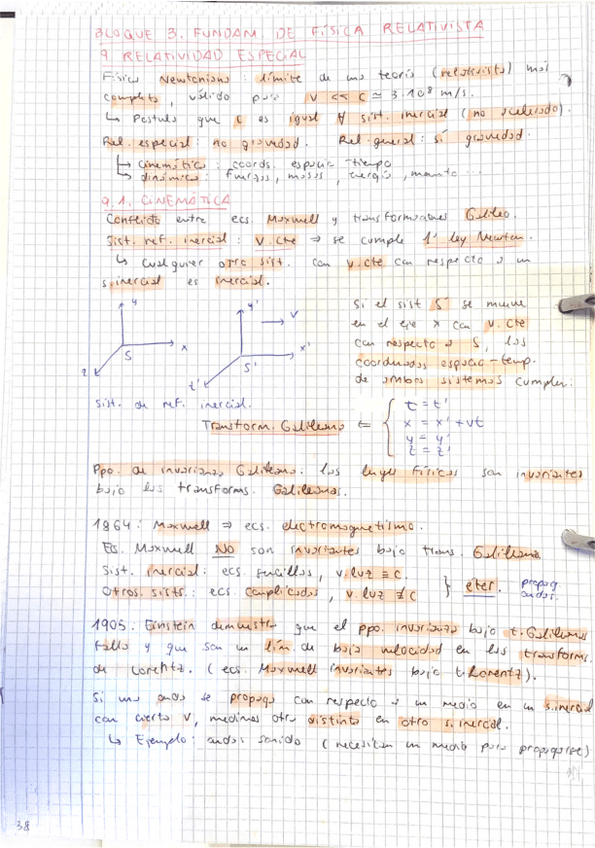 BLOQUE 3. FUNDAM. DE FÍSICA RELATIVISTA
9 RELATIVIDAD ESPECIAL
Física Newtoniana: límite de una teoría (relativista) más
completa, válido para v << c ≃ 3·10⁸ m/s.
↳ Postula que c es igual ∀ sist. inercial (no acelerado).
Rel. especial: no gravedad. Rel. general: sí gravedad.
↳ cinemática: coords. espacio tiempo
↳ dinámica: fuerzas, masas, energía, momento...
9.1. CINEMÁTICA
Conflicto entre ecs. Maxwell y transformaciones Galileo.
Sist. ref. inercial: v. cte ⇒ se cumple 1ª ley Newton.
↳ Cualquier otro sist. con v. cte con respecto a un
s. inercial es inercial.
y y' v
S x S' x'
z z'
Si el sist S' se mueve
en el eje x con v. cte
con respecto a S, las
coordenadas espacio-temp.
de ambos sistemas cumplen:
Sist. de ref. inercial.
Transform. Galileana =
t = t'
x = x' + vt
y = y'
z = z'
Ppo. de invarianza Galileana: las leyes físicas son invariantes
bajo las transforms. Galileanas.
1864: Maxwell ⇒ ecs. electromagnetismo.
Ec. Maxwell NO son invariantes bajo trans. Galileana
Sist. inercial: ecs. sencillas, v. luz ≡ c.
Otros sists.: ecs. complicadas, v. luz ≠ c } éter. propag. ondas.
1905: Einstein demuestra que el ppo. invarianza bajo t. Galileana
falla y que son un lím. de baja velocidad en las transforms.
de Lorentz. (ecs. Maxwell invariantes bajo t. Lorentz).
Si una onda se propaga con respecto a un medio en un s. inercial
con cierta v, medimos otra distinta en otro s. inercial.
↳ Ejemplo: ondas sonido (necesitan un medio para propagarse)
38